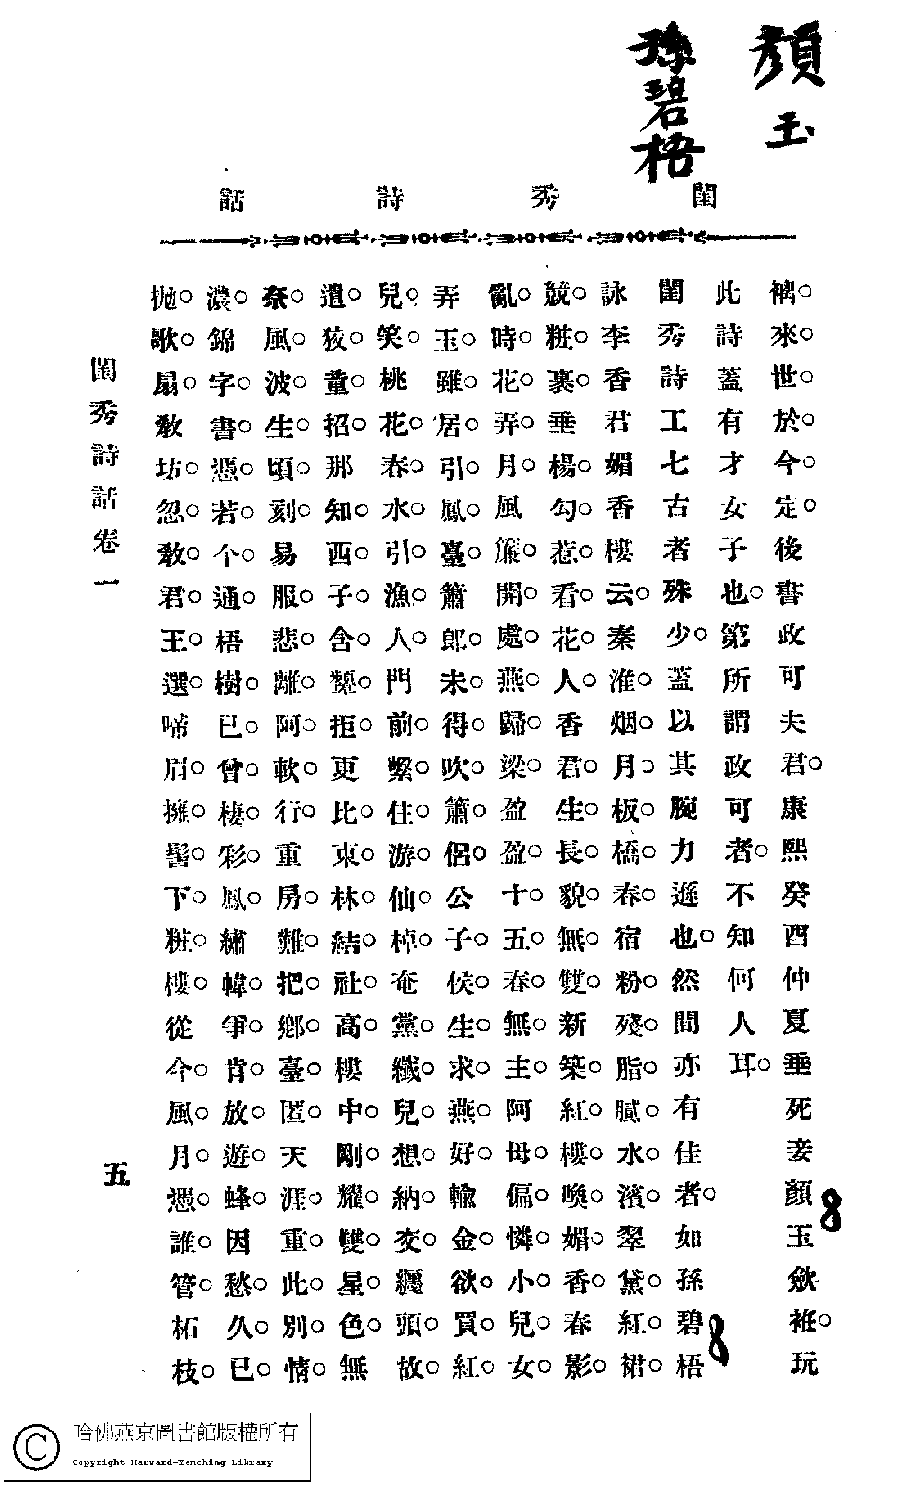 顏玉
孫碧梧
閨秀詩話
裯來世於今定後書政可夫君康熙癸酉仲夏垂死妾顏玉斂衽玩
此詩蓋有才女子也第所謂政可者不知何人耳
閨秀詩工七古者殊少蓋以其腕力遜也然間亦有佳者如孫碧梧
詠李香君媚香樓云秦淮烟月板橋春宿粉殘脂膩水濱翠黛紅裙
競粧裹垂楊勾惹看花人香君生長貌無雙新築紅樓喚媚香春影
亂時花弄月風簾開處燕歸梁盈盈十五春無主阿母偏憐小兒女
弄玉雖居引鳳臺蕭郎未得吹簫侶公子侯生求燕好輸金欲買紅
兒笑桃花春水引漁人門前繫住游仙棹奄黨纖兒想納交纏頭故
遣狡童招那知西子含顰拒更比東林結社高樓中剛耀雙星色無
奈風波生頃刻易服悲離阿軟行重房難把鄉臺匿天涯重此別情
濃錦字書憑若个通梧樹已曾棲彩鳳繡幃爭肯放遊蜂因愁久已
拋歌扇教坊忽敎君王選啼眉擁髻下粧樓從今風月憑誰管柘枝
閨秀詩話卷一
五
8
8
哈佛燕京圖書館版權所有
Copyright Harvard-Yenching Library